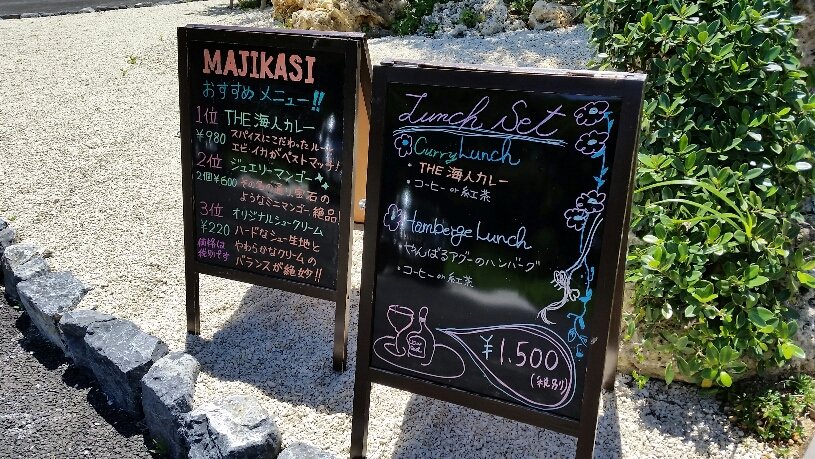 MAJIKASI
おすすめメニュー!!
1位 THE 海人カレー
¥980 スパイスにこだわったルー
エビ・イカがベストマッチ!
2位 ジュエリーマンゴー
2個¥600 その名の通り宝石の
ようなミニマンゴー絶品!
3位 オリジナルシュークリーム
¥220 ハードなシュー生地と
やわらかなクリームの
バランスが絶妙!!
価格は
税別です
Lunch Set
Curry Lunch
・THE 海人カレー
・コーヒー or 紅茶
Hamberge Lunch
やんばるアグーのハンバーグ
・コーヒー or 紅茶
¥1.500
(税別)